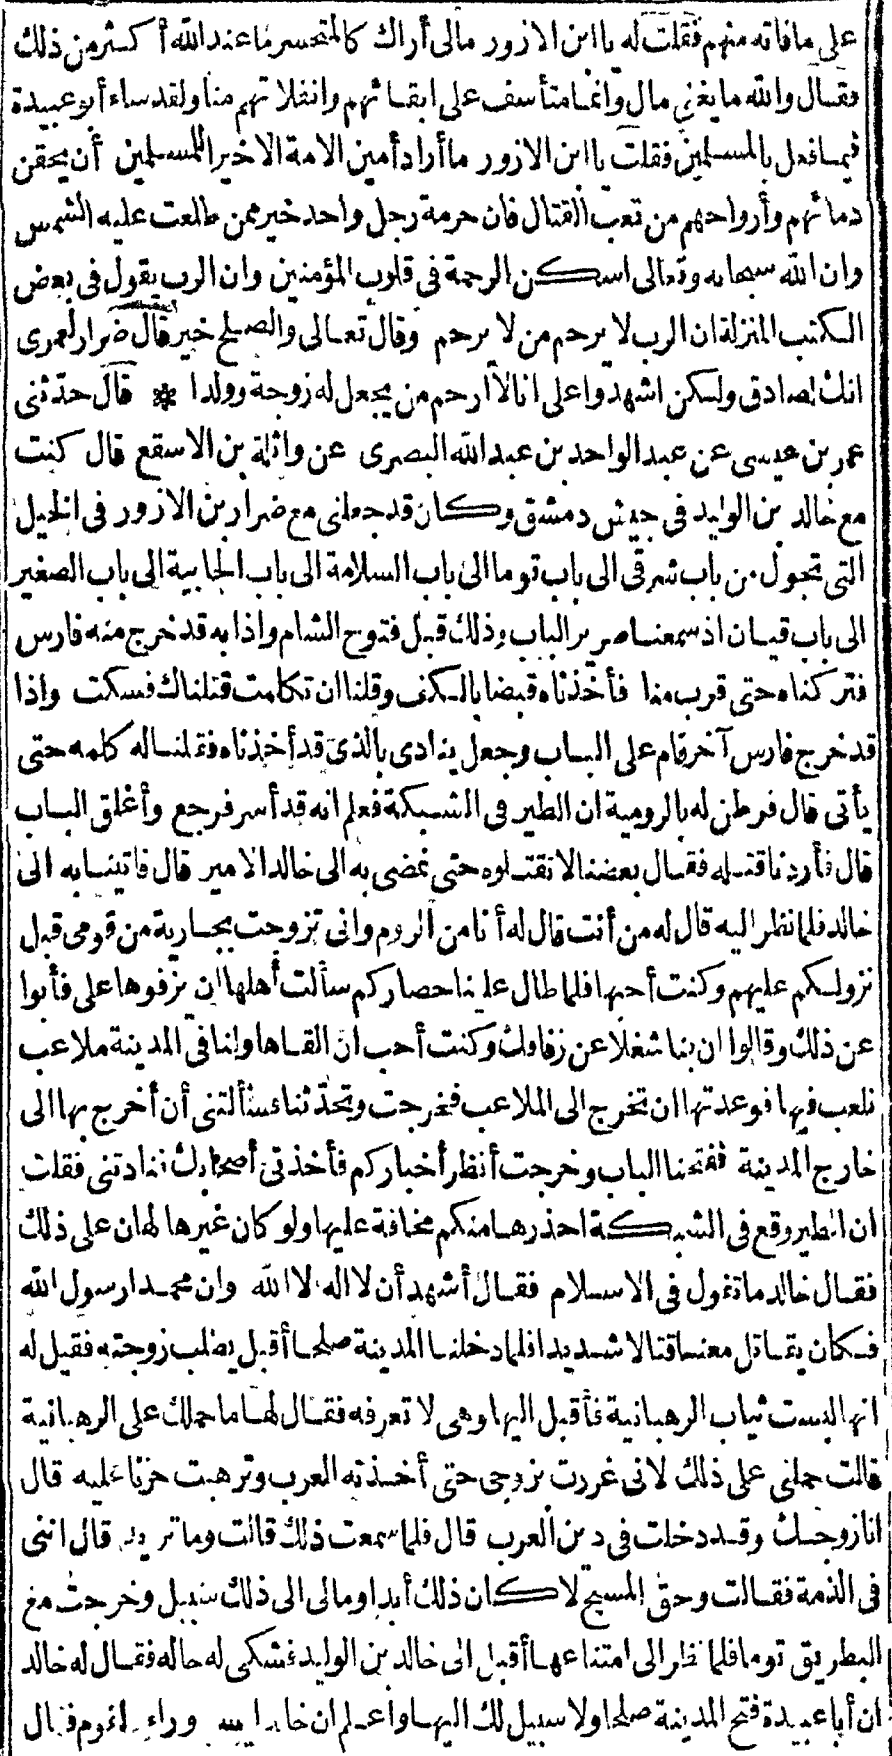 على مافاته منهم فقلت له يا ابن الازور مالى أراك كالمتحسر ماعند الله أكثر من ذلك
فقال والله ما يغنى مال وانما متأسف على ابقائهم وانفلاتهم منا ولقد ساء أبوعبيدة
فيما فعل بالمسلمين فقلت يا ابن الازور ما أراد أمين الامة الاخيرا للمسلمين أن يحقن
دمائهم وأرواحهم من تعب القتال فان حرمة رجل واحد خير ممن طلعت عليه الشمس
وان الله سبحانه وتعالى اسكن الرحمة فى قلوب المؤمنين وان الرب يقول فى بعض
الكتب المنزلة ان الرب لا يرحم من لا يرحم وقال تعالى والصلح خير قال ضرار لعمرى
انك لصادق ولكن اشهدوا على انا لاأرحم من يجعل له زوجة وولدا * قال حدثنى
عمر بن عيسى عن عبد الواحد بن عبد الله البصرى عن واثلة بن الاسقع قال كنت
مع خالد بن الوليد فى جيش دمشق وكان قد جعلنى مع ضرار بن الازور فى الخيل
التى تجول من باب شرقى الى باب توما الى باب السلامة الى باب الجابية الى باب الصغير
الى باب قيسان اذ سمعنا صرير الباب وذلك قبل فتوح الشام واذا به قد خرج منه فارس
فتركناه حتى قرب منا فأخذناه قبضا بالكف وقلنا ان تكلمت قتلناك فسكت واذا
قد خرج فارس آخر قام على الباب وجعل ينادى بالذى قد أخذناه فقلنا له كلمه حتى
يأتى قال فرطن له بالرومية ان الطير فى الشبكة فعلم انه قد أسر فرجع وأغلق الباب
قال فأردنا قتله فقال بعضنا لا تقتلوه حتى نمضى به الى خالد الامير قال فاتينا به الى
خالد فلما نظر اليه قال له من أنت قال له أنا من الروم وانى تزوجت بجارية من قومى قبل
نزولكم عليهم وكنت أحبها فلما طال علينا حصاركم سألت أهلها ان يزفوها على فأبوا
عن ذلك وقالوا ان بنا شغلا عن زفافك وكنت أحب ان القاها ولنا فى المدينة ملاعب
نلعب فيها فوعدتها ان تخرج الى الملاعب فخرجت وتحدثنا فسألتنى أن أخرج بها الى
خارج المدينة ففتحنا الباب وخرجت أنظر أخباركم فأخذنى أصحابك فنادتنى فقلت
ان الطير وقع فى الشبكة احذرها منكم مخافة عليها ولو كان غيرها لهان على ذلك
فقال خالد ما تقول فى الاسلام فقال أشهد أن لا اله الا الله وان محمدا رسول الله
فكان يقاتل معنا قتالا شديدا فلما دخلنا المدينة صلحا أقبل يطلب زوجته فقيل له
انها لبست ثياب الرهبانية فأقبل اليها وهى لا تعرفه فقال لها ما حملك على الرهبانية
قالت حملنى على ذلك لانى غررت بزوجى حتى أخذته العرب وترهبت حزنا عليه قال
انا زوجك وقد دخلت فى دين العرب قال فلما سمعت ذلك قالت وما تريد قال اننى
فى الذمة فقالت وحق المسيح لا كان ذلك أبدا ومالى الى ذلك سبيل وخرجت مع
البطريق توما فلما نظر الى امتناعها أقبل الى خالد بن الوليد فشكى له حاله فقال له خالد
ان أباعبيدة فتح المدينة صلحا ولا سبيل لك اليها واعلم ان خالدا وراء القوم فقال